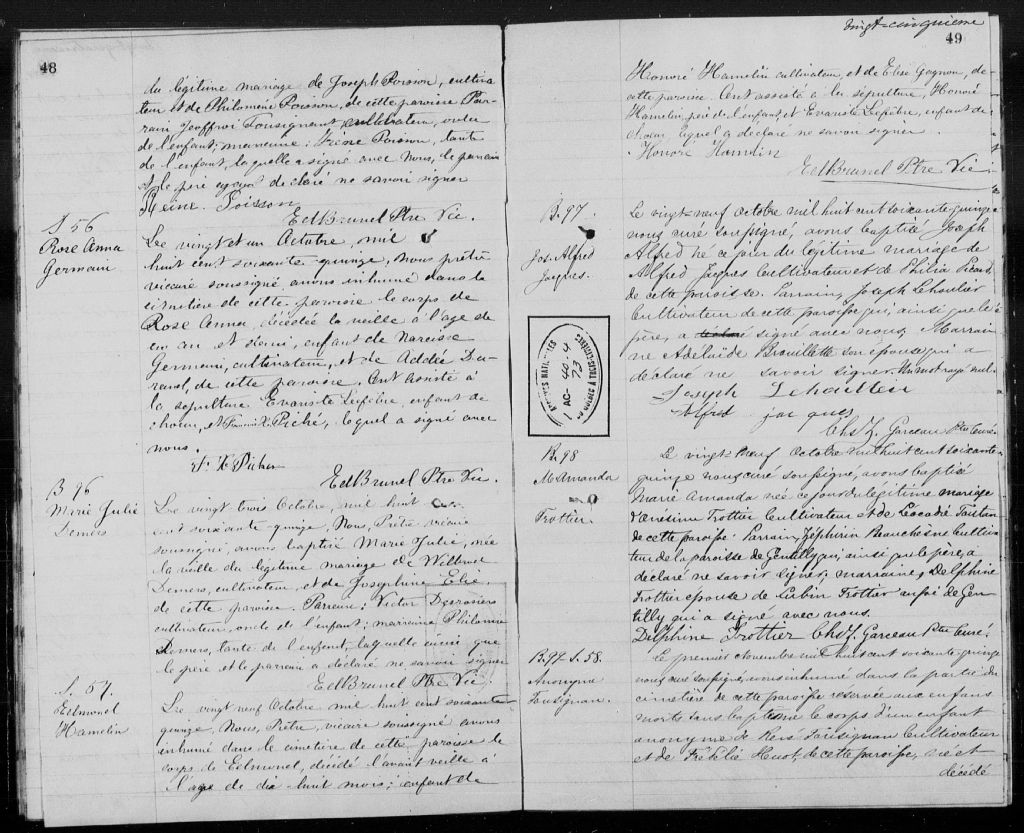 48
du légitime mariage de Joseph Poisson, cultiva
teur et de Philomène Poisson, de cette paroisse Par-
rain Geoffroi Tousignant, cultivateur, oncle
de l'enfant; marraine: Irène Poisson, tante
de l'enfant, laquelle a signé avec nous, le parrain
et le père ayant déclaré ne savoir signer
Reine Poisson
Ed Brunel Ptre Vic.
S 56
Rose Anna
Germain
Le vingt et un Octobre, mil
huit cent soixante-quinze, nous prêtre
vicaire soussigné avons inhumé dans le
cimetière de cette paroisse le corps de
Rose Anna, décédée la veille à l'age de
un an et demi, enfant de Narcisse
Germain, cultivateur, et de Addée Du-
rand, de cette paroisse. Ont assisté à
la sépulture Evariste Lefebre, enfant de
choeur, et François X. Piché, lequel a signé avec
nous.
F. X Picher
Ed Brunel Ptre Vic.
B 96
Marie Julie
Demers
Le vingt trois Octobre, mil huit
cent soixante quinze, Nous, Prêtre vicaire
soussigné, avons baptisé Marie Julie, née
la veille du légitime mariage de Wilbrod
Demers, cultivateur, et de Josephine Elie,
de cette paroisse. Parrain: Victor Desrosiers
cultivateur, oncle de l'enfant; marraine Philomène
Demers, tante de l'enfant, laquelle ainsi que
le père et le parrain a déclaré ne savoir signer
Ed Brunel Ptre Vic.
S. 57.
Edmond
Hamelin
Le vingt neuf Octobre mil huit cent soixante-
quinze, Nous, Prêtre, vicaire soussigné avons
inhumé dans le cimetière de cette paroisse le
corps de Edmond, décédé l'avant veille à
l'age de dix huit mois; enfant de
vingt-cinquième
49
Honoré Hamelin cultivateur, et de Elise Gagnon, de
cette paroisse. Ont assisté à la sépulture, Honoré
Hamelin, père de l'enfant, et Evariste Lefebre, enfant de
choeur, lequel a déclaré ne savoir signer
Honoré Hamelin
Ed Brunel Ptre Vic
B. 97.
Jos. Alfred
Jacques.
Le vingt-neuf Octobre mil huit cent soixante-quinze
nous curé soussigné, avons baptisé Joseph
Alfred né ce jour du légitime mariage de
Alfred Jacques Cultivateur et de Philia Picard,
de cette paroisse. Parrain, Joseph Lehoulier
Cultivateur de cette paroisse qui, ainsi que le
père, a déclaré signé avec nous, Marrai-
ne Adelaïde Brouillette son épouse qui a
déclaré ne savoir signer. Un mot rayé nul.
Joseph Lehoullier
Alfred jacques
Chs Z. Garceau Ptre Curé.
ARCHIVES NATIONALES
AC- 40-4
73
DU QUÉBEC À TROIS-RIVIÈRES
B. 98
M. Amanda
Trottier.
Le vingt neuf Octobre mil huit cent soixante-
quinze nous curé soussigné, avons baptisé
Marie Amanda née ce jour du légitime mariage
d'Onésime Trottier Cultivateur et de Léocadie Tristan
de cette paroisse. Parrain, Zéphirin Beauchesne Cultiva-
teur de la paroisse de Gentilly qui, ainsi que le père, a
déclaré ne savoir signer; marraine, Delphine
Trottier épouse de Lubin Trottier aussi de Gen-
tilly qui a signé avec nous
Delphine Trottier Chs Z. Garceau Ptre Curé.
B. 99 S. 58.
Anonyme
Tousignan.
Le premier Novembre mil huit cent soixante-quinze
nous curé soussigné, avons inhumé dans la partie du
cimetière de cette paroisse réservée aux enfans
morts sans baptême le corps d'un enfant
anonyme de Cultivateur
et de Huot, de cette paroisse, né et
décédé